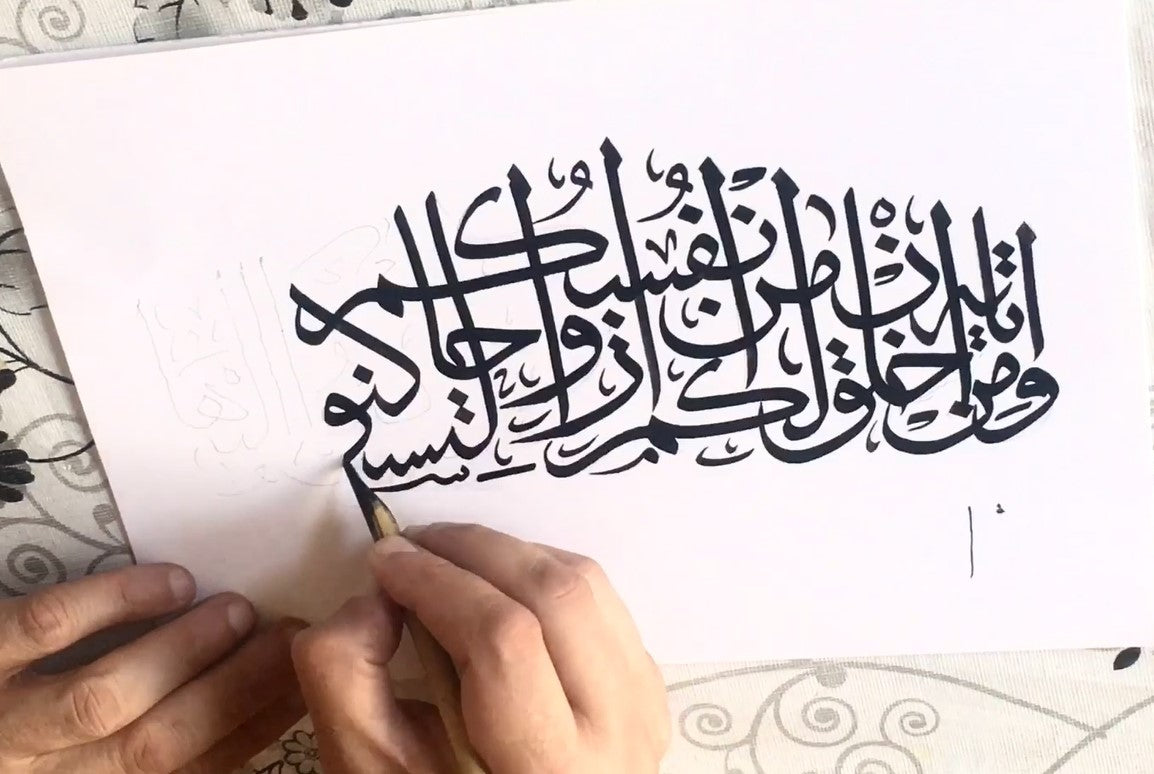 ومن آياته أن خلق لكم من أنفسكم أزواجا لتسكنوا